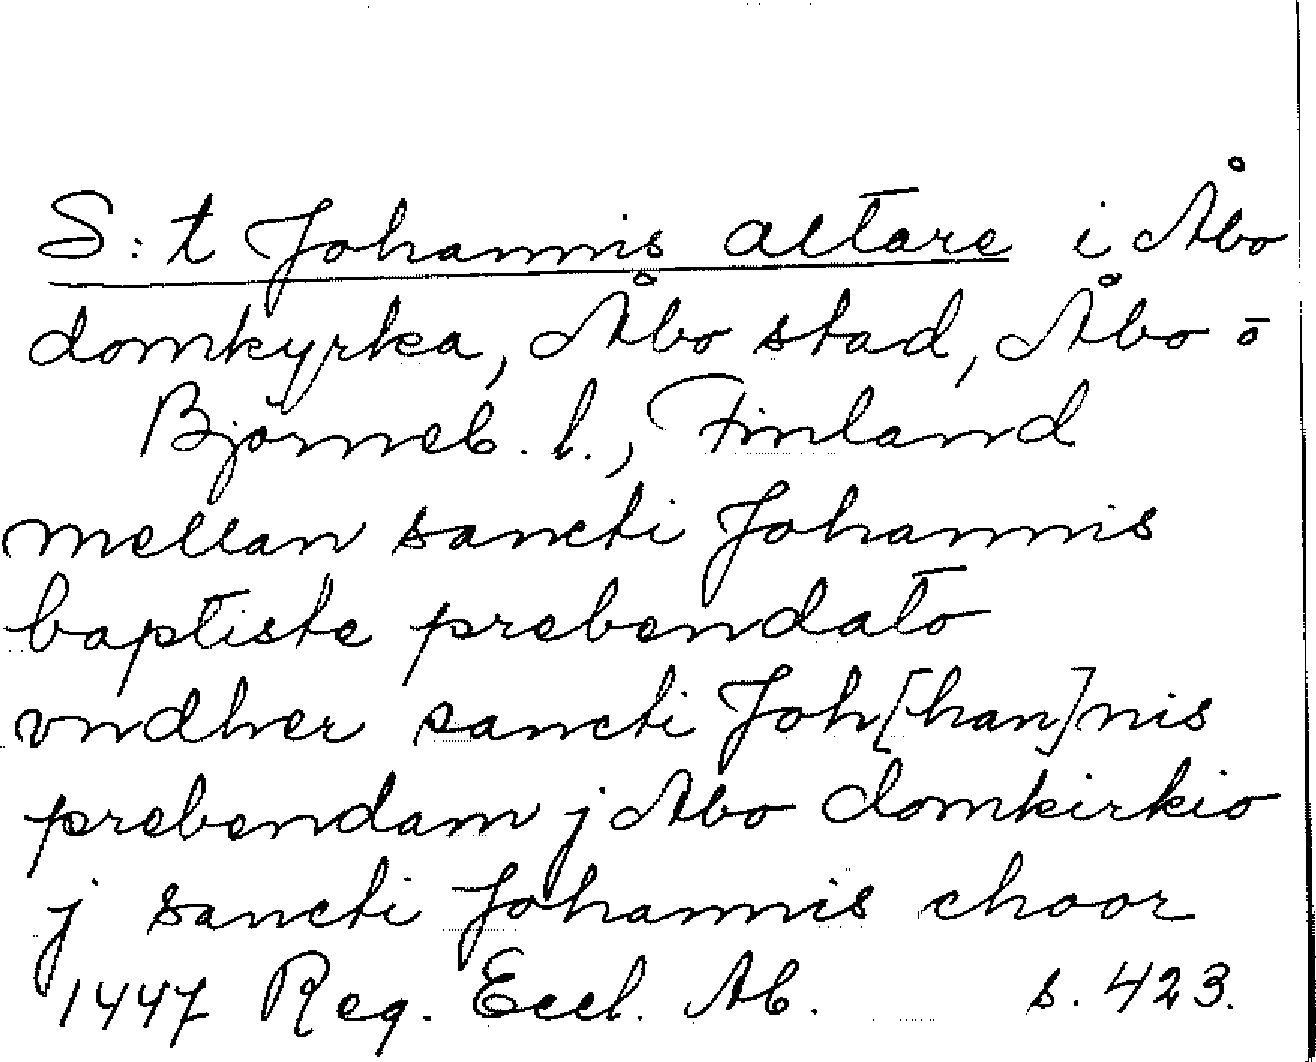 S:t Johannis altare i Åbo
domkyrka, Åbo stad, Åbo o
Björneb. l., Finland
mellan sancti Johannis
baptiste prebendato
vndher sancti Joh[han]nis
prebendam j Abo domkirkio
j sancti Johannis choor
1447 Reg. Eccl. Ab. s. 423.